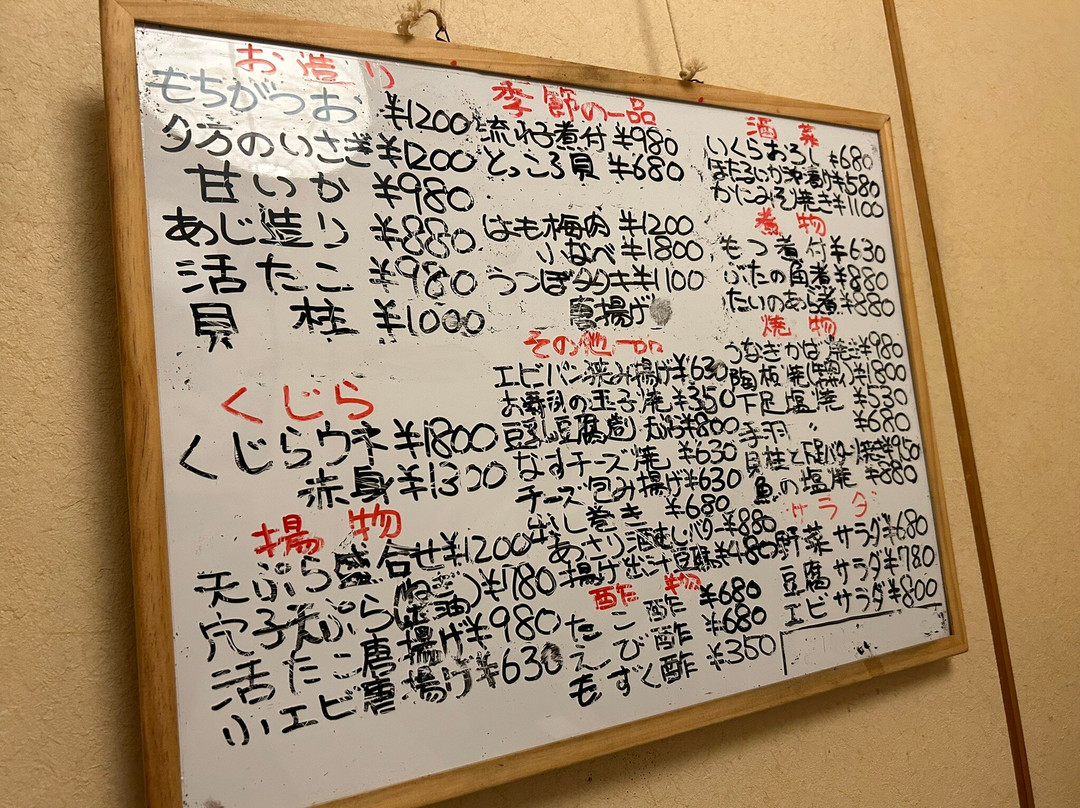 お造り
もちがつお ¥1200
夕方のいさぎ ¥1200
甘いか ¥980
あじ造り ¥880
活たこ ¥980
貝柱 ¥1000
くじら
くじらウネ ¥1800
赤身 ¥1300
揚物
天ぷら盛合せ ¥1200
穴子天ぷら ¥1780
活たこ唐揚げ ¥980
小エビ唐揚げ ¥630
季節の一品
流れ子煮付 ¥980
とっころ貝 ¥680
はも梅肉 ¥1200
小なべ ¥1800
うつぼタタキ ¥1100
唐揚げ
その他一品
エビパン挟み揚げ ¥630
お寿司の玉子焼 ¥350
¥800
なすチーズ焼 ¥630
チーズ包み揚げ ¥630
出し巻き ¥680
あさり酒むし ¥880
揚げ出汁豆腐 ¥480
酢物
たこ酢 ¥680
えび酢 ¥680
もずく酢 ¥350
酒菜
いくらおろし ¥680
ほたるいか沖漬り ¥580
かにみそ焼き ¥1100
煮物
もつ煮付 ¥630
ぶたの角煮 ¥880
たいのあら煮 ¥880
焼物
うなぎかば焼 ¥980
陶板焼 ¥1800
下足塩焼 ¥530
手羽 〃 ¥680
貝柱と下足バター焼 ¥950
魚の塩焼 ¥880
サラダ
野菜サラダ ¥680
豆腐サラダ ¥780
エビサラダ ¥800